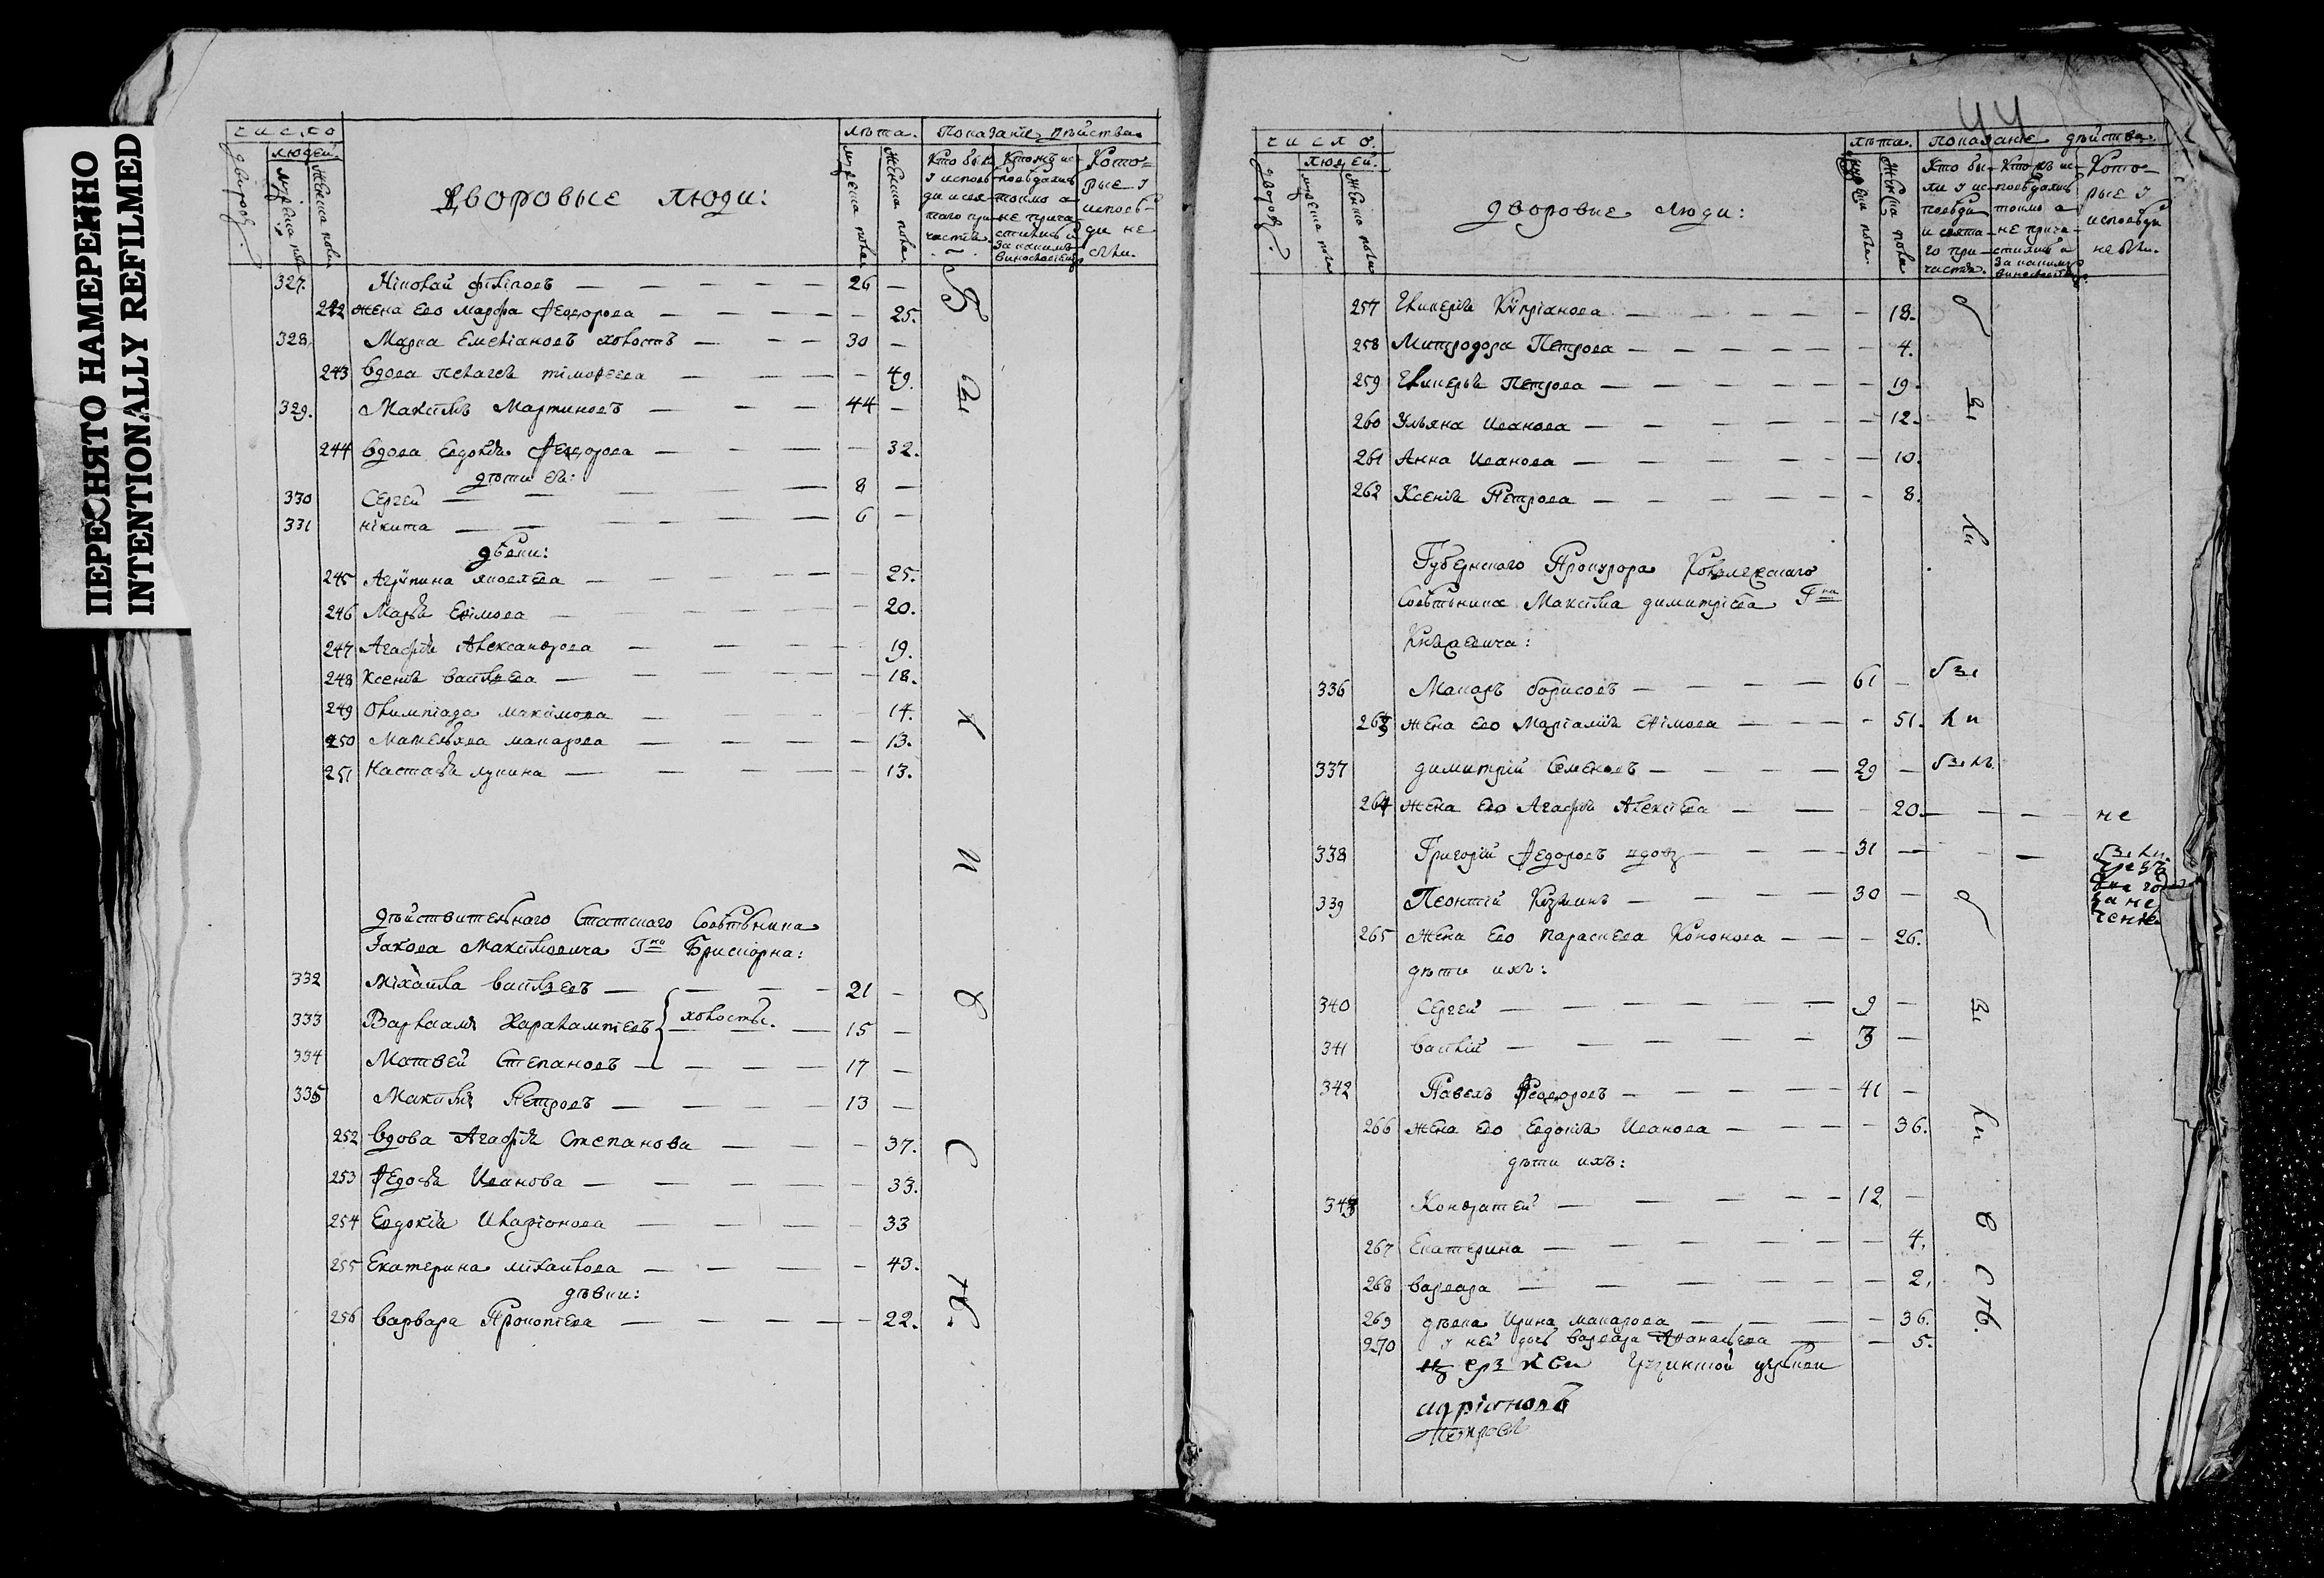 ПЕРЕСНЯТО НАМЕРЕННО
INTENTIONALLY REFILMED
число
людей.
дворовъ.
мужеска пола
женска пола
Дворовые люди:
лѣта.
мужеска пола
женска пола
Показанїе дѣйства
Кто былъ
у исповѣ-
ди и свя-
таго при-
частїя.
Кто жъ ис-
повѣдался
токмо а
не прича-
стился и
за какимъ
винословїемъ
Кото-
рые у
исповѣ-
ди не
были.
327. Нїколай Фїлїповъ — 26 —
242 жена его Марфа Ѳеодорова — 25.
328. Марка Емелїановъ холостъ — 30 —
243 вдова Пелагея Тїмоѳеева — 49.
329. Максїмъ Мартиновъ — 44 —
244 вдова Евдокїя Ѳеодорова — 32.
дѣти ея:
330 Сергей — 8 —
331 Нїкита — 6 —
дѣвки:
245 Агрїпина Яковлева — 25.
246 Марья Ефїмова — 20.
247 Агафїя Александрова — 19.
248 Ксенїя Васїльева — 18.
249 Олимпїада Максїмова — 14.
250 Мательяна Макарова — 13.
251 Настасья Лукина — 13.
Дѣйствительнаго Статскаго Совѣтьника
Іакова Максїмовича Гна Брискорна:
332 Мїхайла Васїльевъ — 21 —
333 Варлаамъ Харалампїевъ холосты. 15 —
334 Матвей Степановъ — 17 —
335 Максїмъ Петровъ — 13 —
252 вдова Агафїя Степанова — 37.
253 Ѳедосья Иванова — 33.
254 Евдокїя Иларїонова — 33
255 Екатерина Мїхайлова — 43.
дѣвки:
256 Варвара Прокопїева — 22.
44
число.
людей.
дворовъ.
мужеска пола
женска пола
дворовые люди:
лѣта.
мужеска пола.
женска пола
показанїе дѣйства.
Кто бы-
ли у ис-
повѣди
и свята-
го при-
частїя.
Кто жъ ис-
повѣдался
токмо а
не прича-
стился и
за какимъ
винословїемъ.
Кото-
рые у
исповѣди
не были.
257 Гликерїя Кѵпрїанова — 18.
258 Митродора Петрова — 4.
259 Гликерья Петрова — 19.
260 Ульяна Иванова — 12.
261 Анна Иванова — 10.
262 Ксенїя Петрова — 8.
Губернскаго Прокурора Коллежскаго
Совѣтьника Максїма Димитрїева Гна
Княжевича:
336 Макаръ Борисовъ — 61 — бы
263 жена его Марїамїя Ефїмова — 51. ли
337 Димитрїй Семеновъ — 29 — былъ
264 жена его Агафїя Алексїева — 20. — не
338 Григорїй Ѳедоровъ вдовъ — 31 — были.
339 Леонтїй Кузминъ — 30 —
265 жена его Параскева Кононова — 26.
дѣти ихъ:
340 Сергей — 9 —
341 Васїлїй — 3 —
342 Павелъ Ѳеодоровъ — 41 —
266 жена его Евдокїя Иванова — 36.
дѣти ихъ:
343 Кондратей — 12 —
267 Екатерина — 4.
268 Варвара — 2.
269 дѣвка Ирина Макарова — 36.
270 у ней дочь Варвара Аѳанасьева — 5.
Петровъ